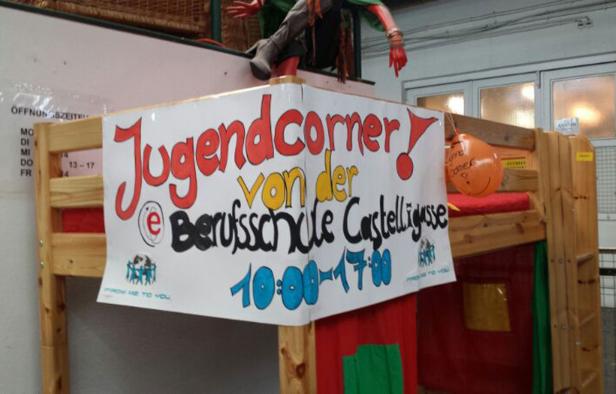 ÖFFNUNGSZEITEN
MO
DI
MI
DO
FR
13 - 17
Jugendcorner!
von der
e Berufsschule Castelligasse
10:00-17:00
FROM ME TO YOU
FROM ME TO YOU